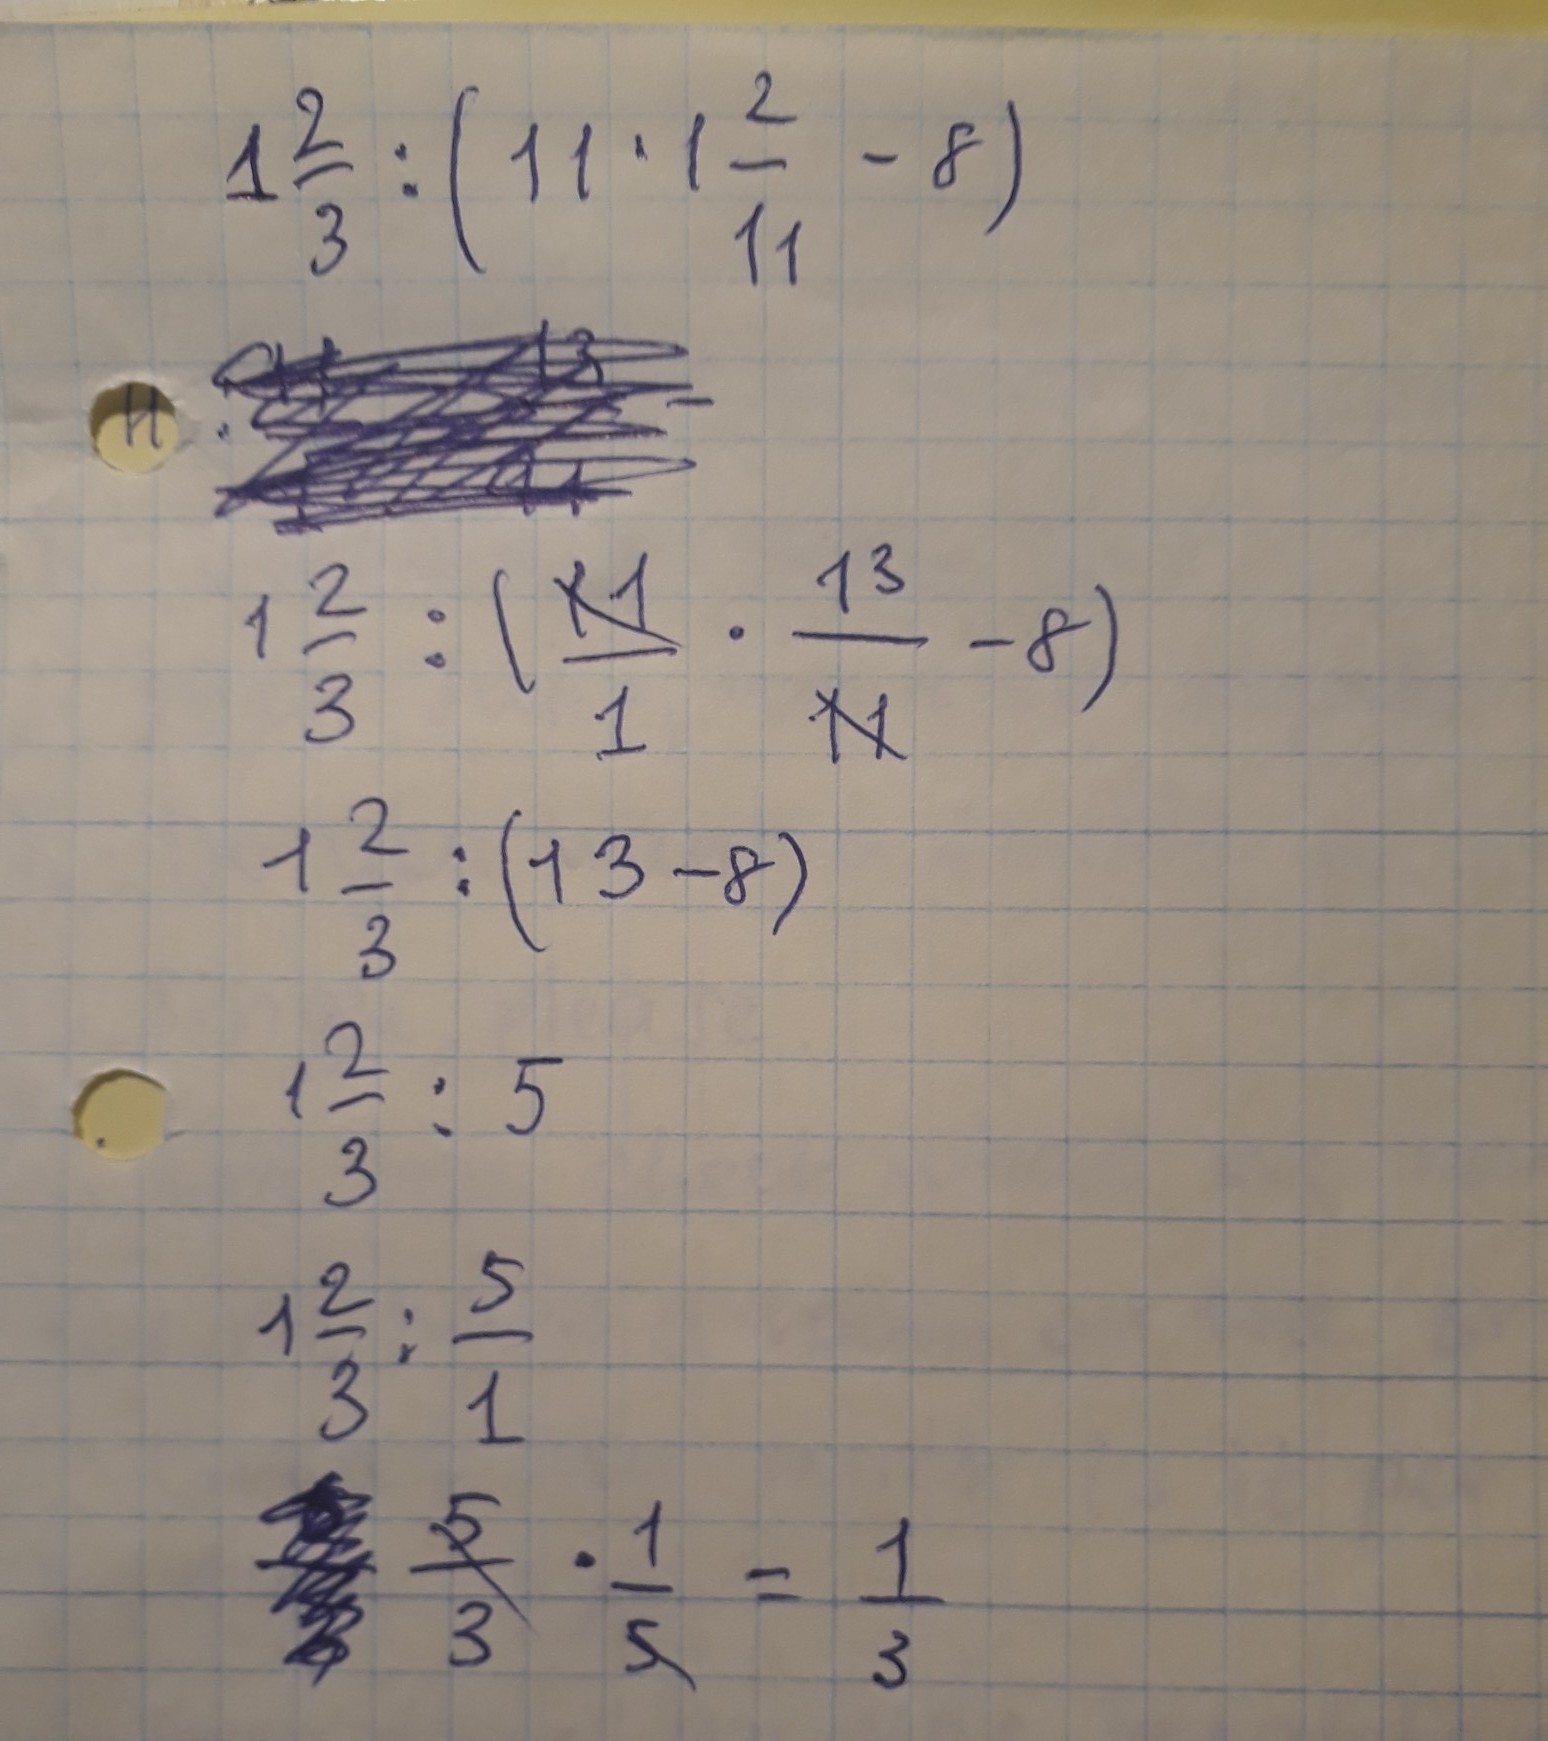 1 2/3 : (11 · 1 2/11 - 8)
1 2/3 : (11/1 · 13/11 - 8)
1 2/3 : (13 - 8)
1 2/3 : 5
1 2/3 : 5/1
5/3 · 1/5 = 1/3